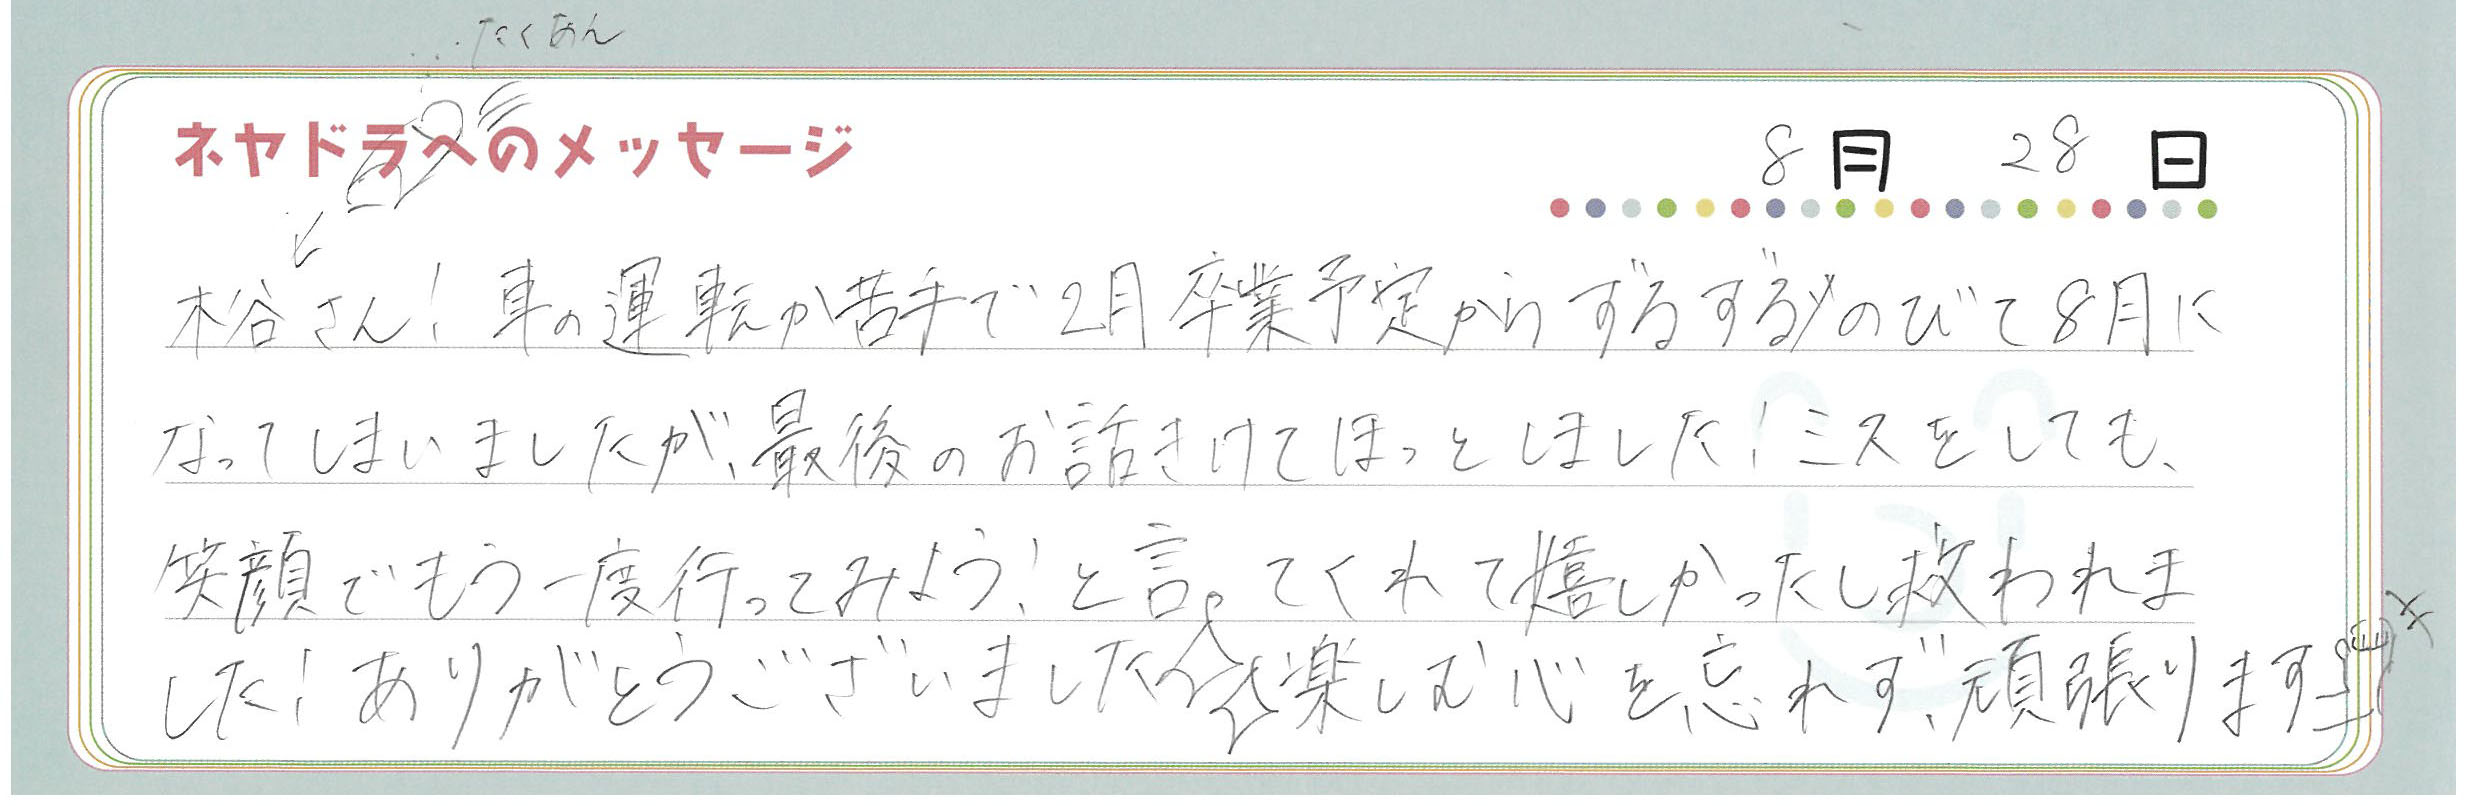 たくあん
ネヤドラへのメッセージ
8月 28日
木谷さん！車の運転が苦手で2月卒業予定からずるずるのびて8月に
なってしまいましたが、最後のお話きけてほっとしました！ミスをしても、
笑顔でもう一度行ってみよう！と言ってくれて嬉しかったし救われま
した！ありがとうございました 楽しむ心を忘れず、頑張ります